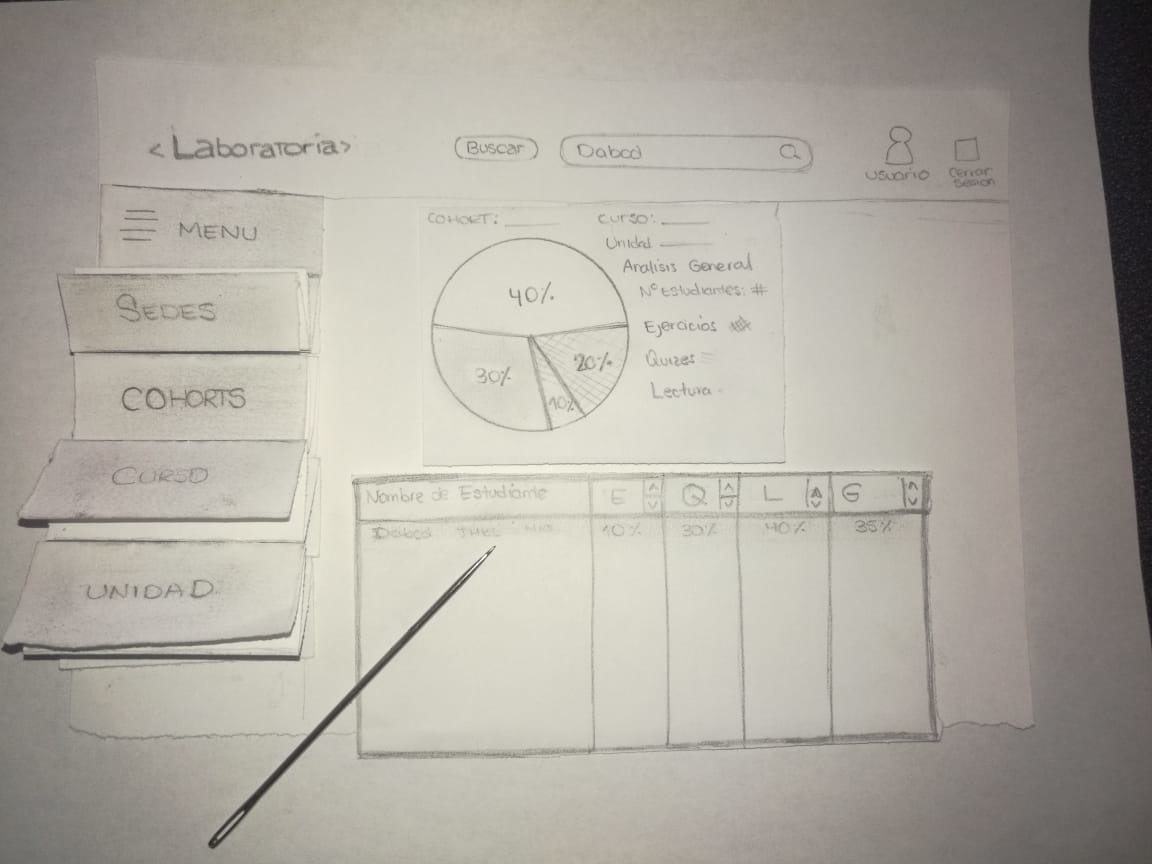 <Laboratoria>
Buscar
Dabcd
usuario
Cerrar
sesion
MENU
SEDES
COHORTS
CURSO
UNIDAD
COHORT: ____
Curso: ____
Unidad ____
Analisis General
N° Estudiantes: #
Ejercicios
Quizes
Lectura
40%
30%
20%
10%
Nombre de Estudiante E Q L G
Dabcd 10% 30% 40% 35%